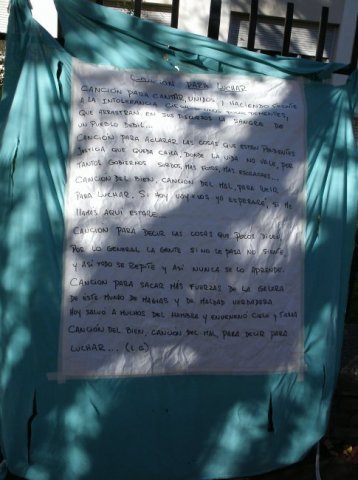 CANCIÓN PARA LUCHAR
CANCIÓN PARA CANTAR, UNIDOS, Y HACIENDO FRENTE
A LA INTOLERANCIA DE
QUE ARRASTRAN EN SUS DISCURSOS LA SANGRE DE
UN PUEBLO DEBIL...
CANCIÓN PARA ACLARAR LAS COSAS QUE ESTÉN PENDIENTES
JUSTICIA QUE QUEDA CHICA, DONDE LA VIDA NO VALE, POR
TANTOS GOBIERNOS SORDOS, MAS POBRES, MAS ESCASACES...
CANCIÓN DEL BIEN, CANCIÓN DEL MAL, PARA DECIR
PARA LUCHAR, SI HOY YO ESPERARE, SI ME
LLAMAS AQUÍ ESTARE...
CANCIÓN PARA DECIR LAS COSAS QUE POCOS DICEN,
POR LO GENERAL LA GENTE SI NO LE PASA NO SIENTE,
Y ASI TODO SE REPITE Y ASI NUNCA SE LO APRENDE.
CANCIÓN PARA SACAR MAS FUERZAS DE LA GALERA
DE ESTE MUNDO DE MAGIAS Y DE MALDAD VERDADERA
HOY SALVO A MUCHOS DEL HAMBRE Y ENVENENÓ CIELO Y TIERRA
CANCIÓN DEL BIEN, CANCIÓN DEL MAL, PARA DECIR PARA
LUCHAR... (L.G)